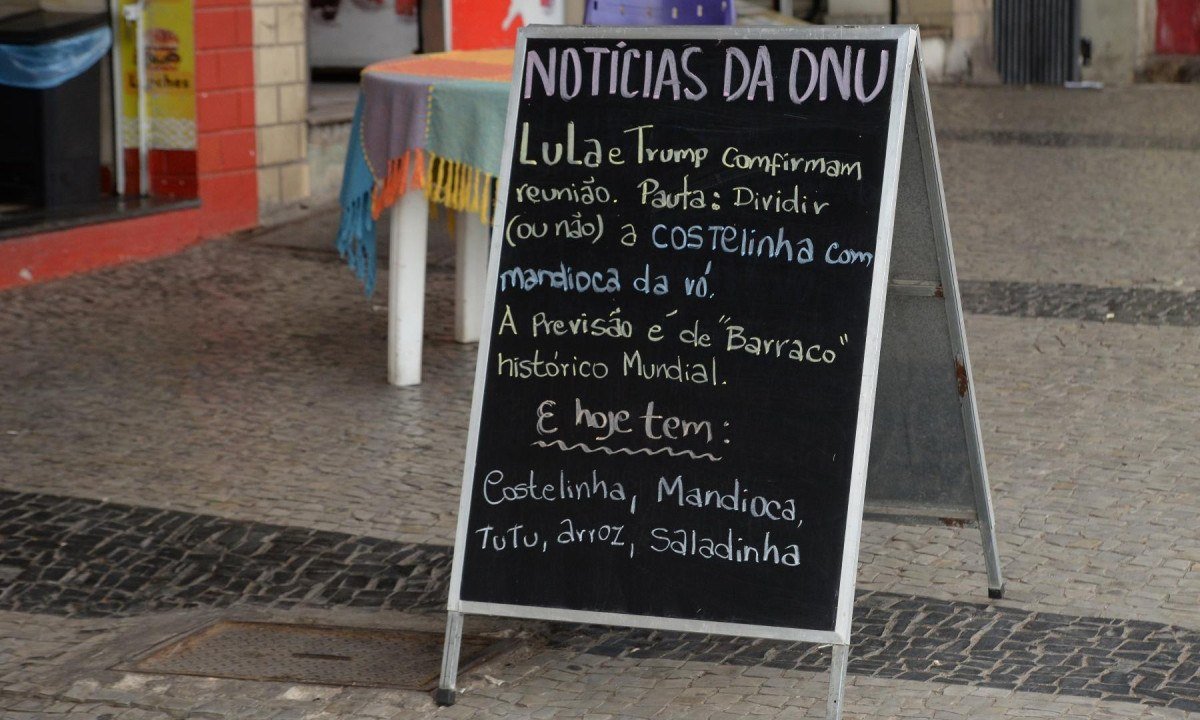 NOTÍCIAS DA ONU
LuLa e Trump Comfirmam
reunião. Pauta: Dividir
(ou não) a COSTElinha com
mandioca da vó.
A Previsão é de "Barraco"
histórico Mundial.
E hoje tem:
Costelinha, Mandioca,
TuTu, arroz, Saladinha